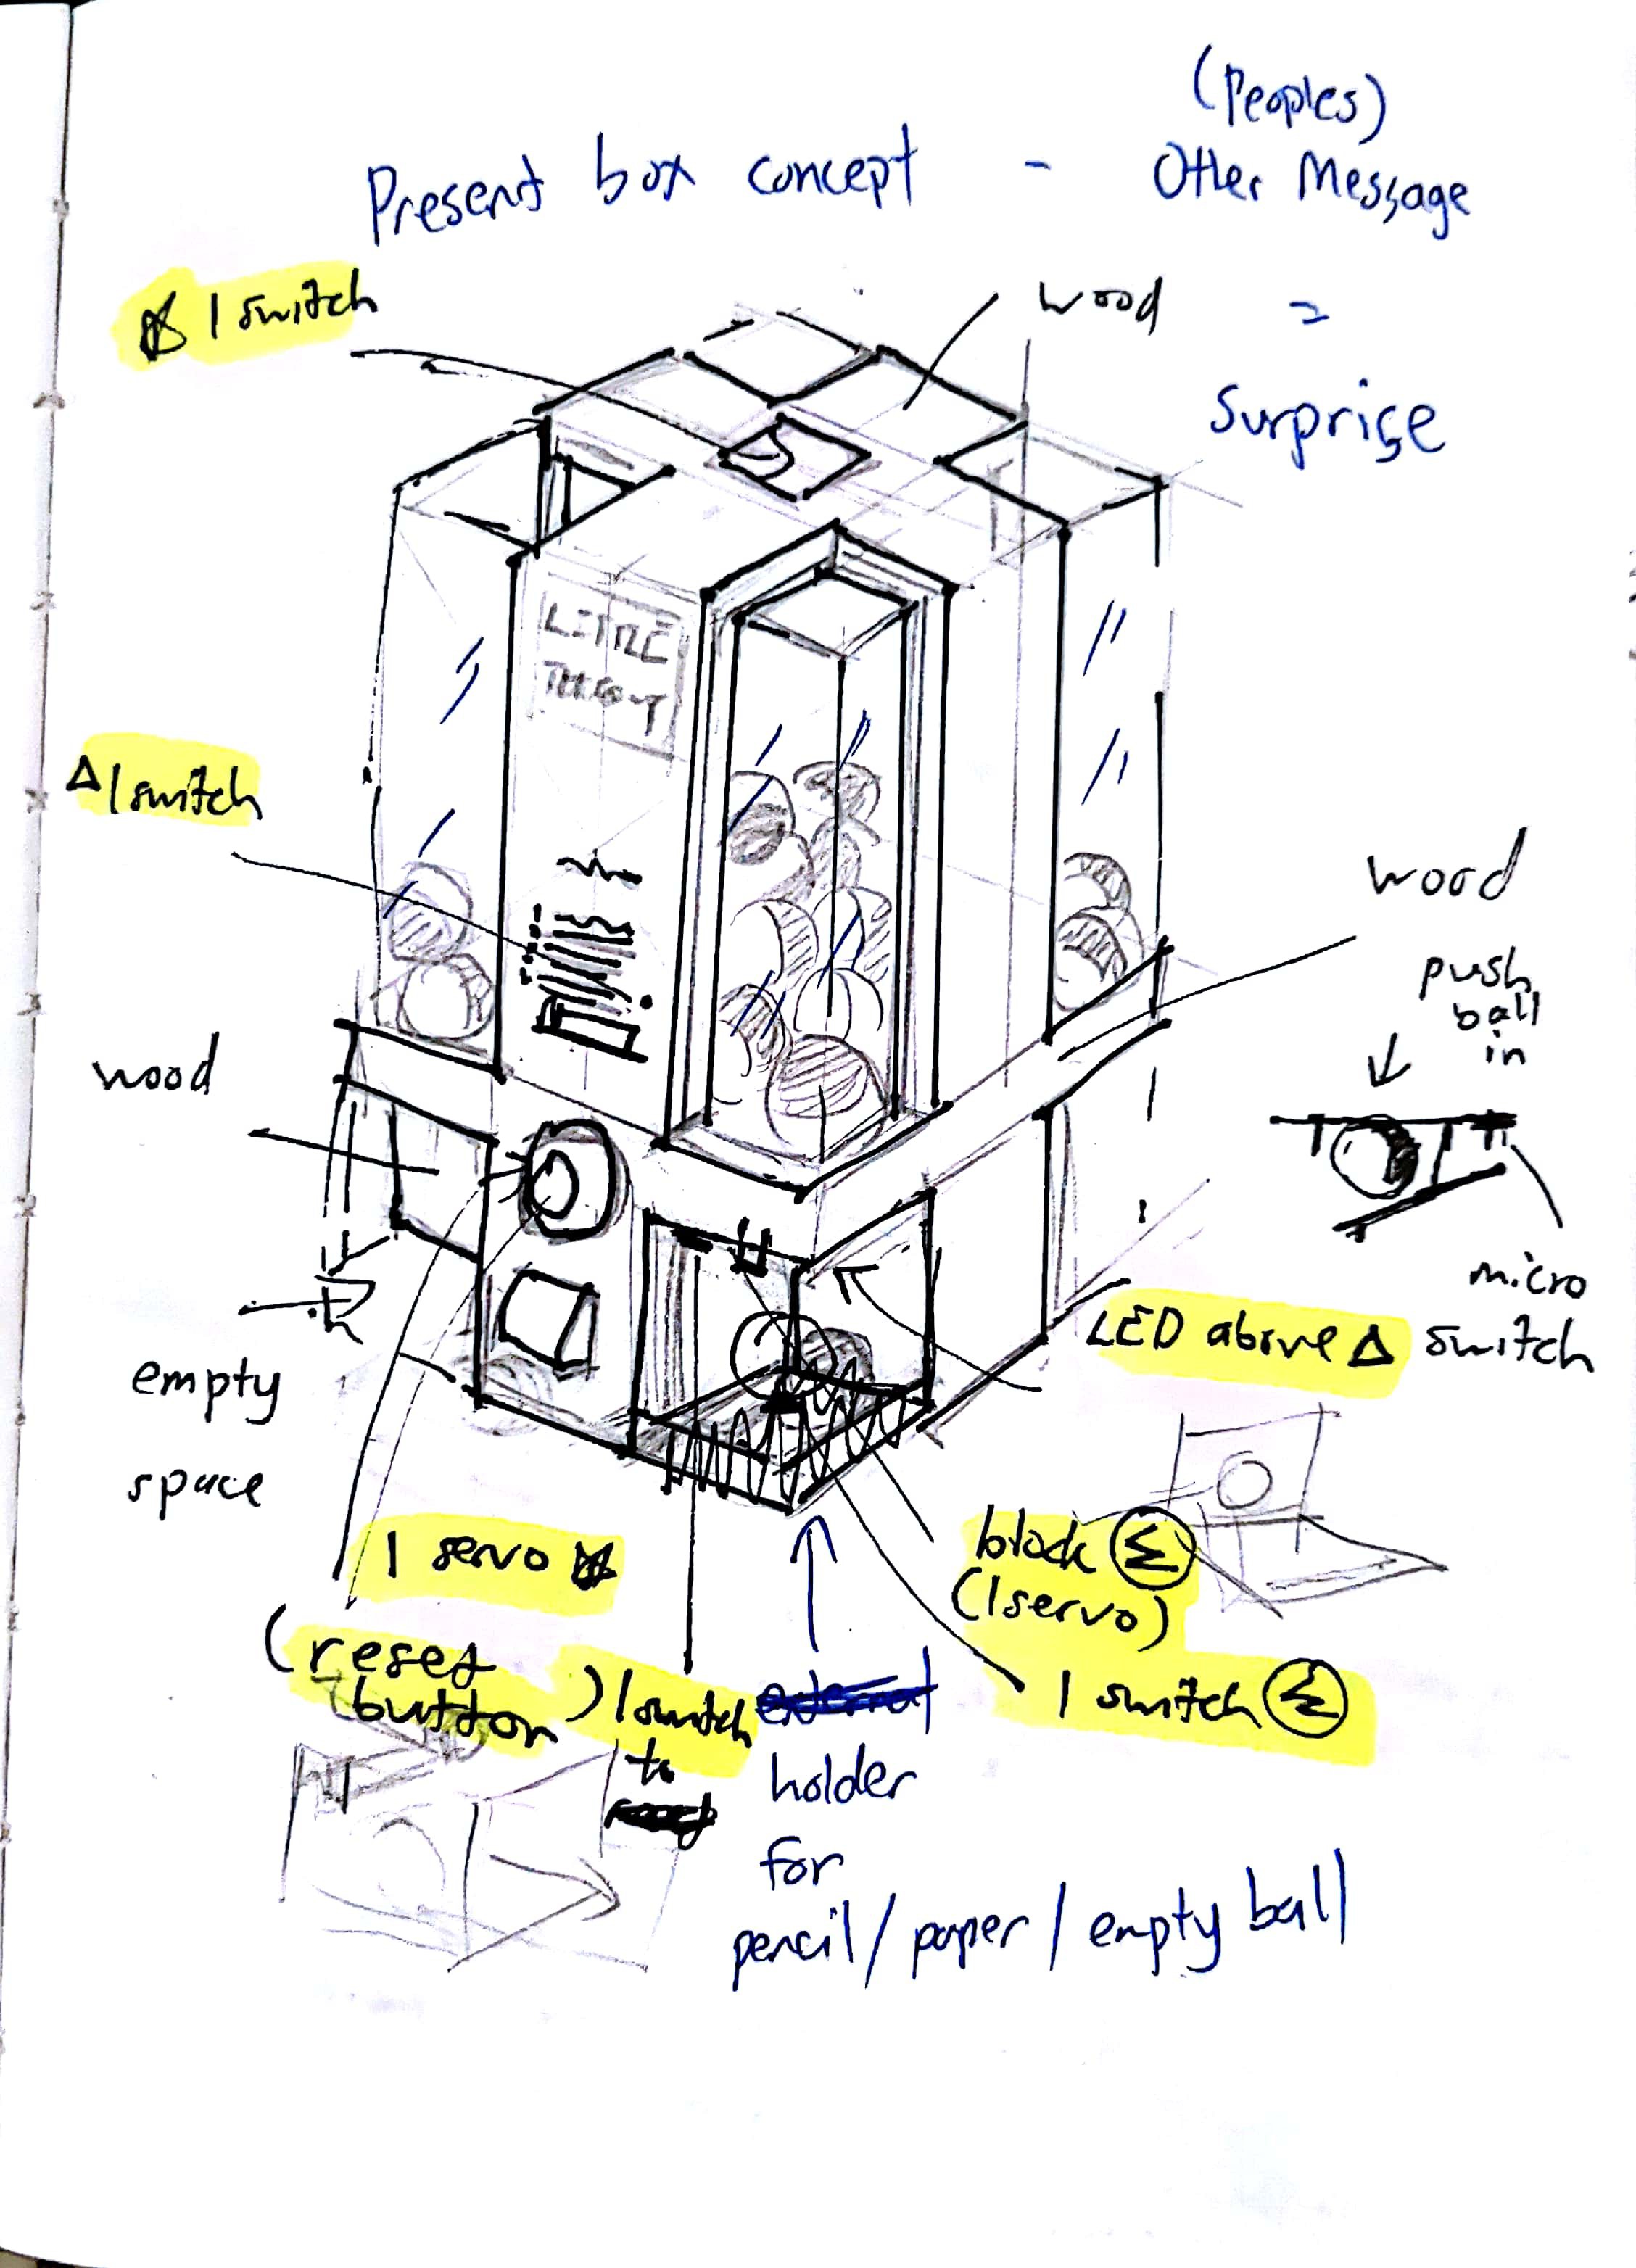 (Peoples)
Present box concept - Other Message
=
Surprise
1 switch
wood
LITTLE
Δ 1 switch
wood
push
ball
in
wood
micro
switch
LED above Δ
empty
space
1 servo
block Σ
(1 servo)
(reset
button)
1 switch
to
1 switch Σ
holder
for
pencil / paper / empty ball